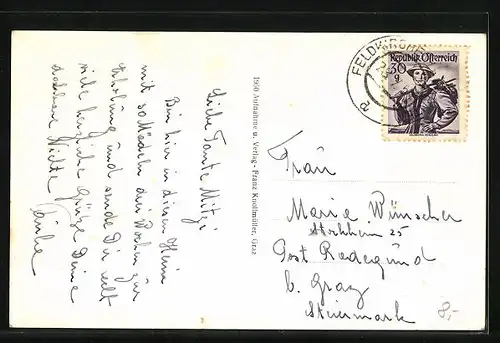 Liebe Tante Mitzi
Bin hier in diesem Heim
mit 50 Mädchen drei Wochen zur
Erholung und sende Dir recht
viele herzliche Grüße Deine
dankbare Nichte
1950 Aufnahme u. Verlag - Franz Knollmüller, Graz
FELDKIRCHEN
d
Republik Österreich
30
g
Frau
Marie Wünscher
Stockheim 25
Post Radegund
b. Graz
Steiermark
8,-